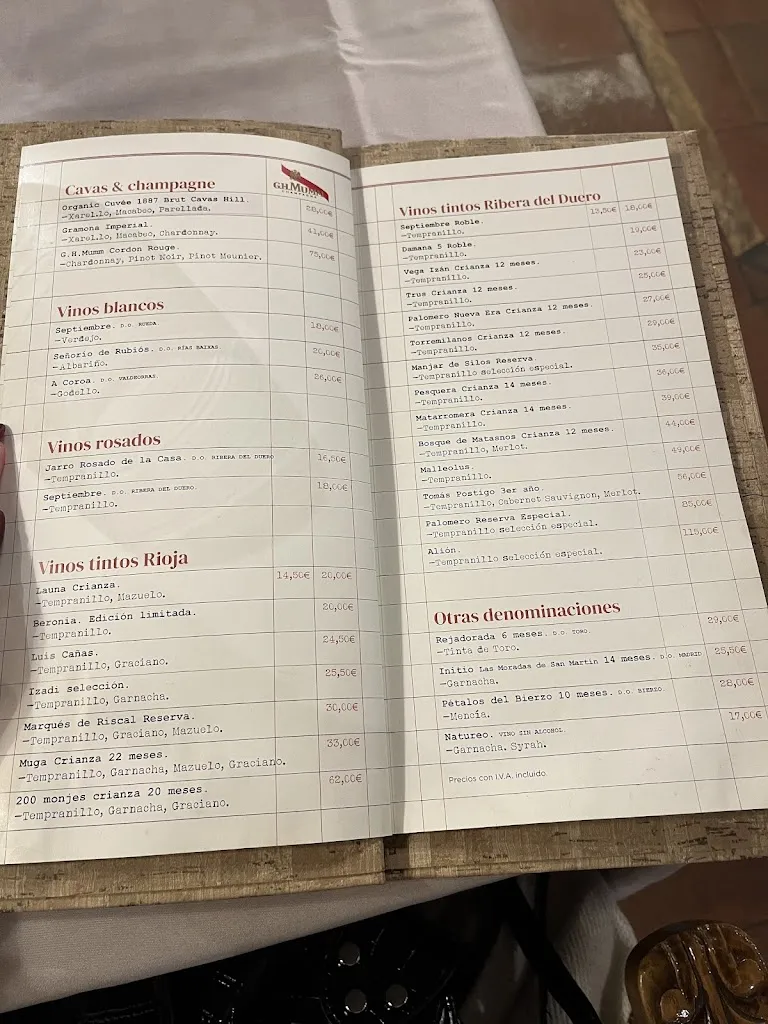 Cavas & champagne
G.H.MUMM
CHAMPAGNE
Organic Cuvée 1887 Brut Cavas Hill. 28,00€
—Xarel.lo, Macabeo, Parellada.
Gramona Imperial. 41,00€
—Xarel.lo, Macabeo, Chardonnay.
G.H.Mumm Cordon Rouge. 75,00€
—Chardonnay, Pinot Noir, Pinot Meunier.
Vinos blancos
Septiembre. D.O. RUEDA 18,00€
—Verdejo.
Señorío de Rubiós. D.O. RÍAS BAIXAS. 20,00€
—Albariño.
A Coroa. D.O. VALDEORRAS. 26,00€
—Godello.
Vinos rosados
Jarro Rosado de la Casa. D.O. RIBERA DEL DUERO 16,50€
—Tempranillo.
Septiembre. D.O. RIBERA DEL DUERO. 18,00€
—Tempranillo.
Vinos tintos Rioja
Launa Crianza. 14,50€ 20,00€
—Tempranillo, Mazuelo.
Beronia. Edición limitada. 20,00€
—Tempranillo.
Luis Cañas. 24,50€
—Tempranillo, Graciano.
Izadi selección. 25,50€
—Tempranillo, Garnacha.
Marqués de Riscal Reserva. 30,00€
—Tempranillo, Graciano, Mazuelo.
Muga Crianza 22 meses. 33,00€
—Tempranillo, Garnacha, Mazuelo, Graciano.
200 monjes crianza 20 meses. 62,00€
—Tempranillo, Garnacha, Graciano.
Vinos tintos Ribera del Duero
Septiembre Roble. 13,50€ 18,00€
—Tempranillo.
Damana 5 Roble. 19,00€
—Tempranillo.
Vega Izán Crianza 12 meses. 23,00€
—Tempranillo.
Trus Crianza 12 meses. 25,00€
—Tempranillo.
Palomero Nueva Era Crianza 12 meses. 27,00€
—Tempranillo.
Torremilanos Crianza 12 meses. 29,00€
—Tempranillo.
Manjar de Silos Reserva. 35,00€
—Tempranillo selección especial.
Pesquera Crianza 14 meses. 36,00€
—Tempranillo.
Matarromera Crianza 14 meses. 39,00€
—Tempranillo.
Bosque de Matasnos Crianza 12 meses. 44,00€
—Tempranillo, Merlot.
Malleolus. 49,00€
—Tempranillo.
Tomás Postigo 3er año. 56,00€
—Tempranillo, Cabernet Sauvignon, Merlot.
Palomero Reserva Especial. 85,00€
—Tempranillo selección especial.
Alión. 115,00€
—Tempranillo selección especial.
Otras denominaciones
Rejadorada 6 meses. D.O. TORO. 29,00€
—Tinta de Toro.
Initio Las Moradas de San Martin 14 meses. D.O. MADRID. 25,50€
—Garnacha.
Pétalos del Bierzo 10 meses. D.O. BIERZO. 28,00€
—Mencía.
Natureo. VINO SIN ALCOHOL. 17,00€
—Garnacha. Syrah.
Precios con I.V.A. incluido.